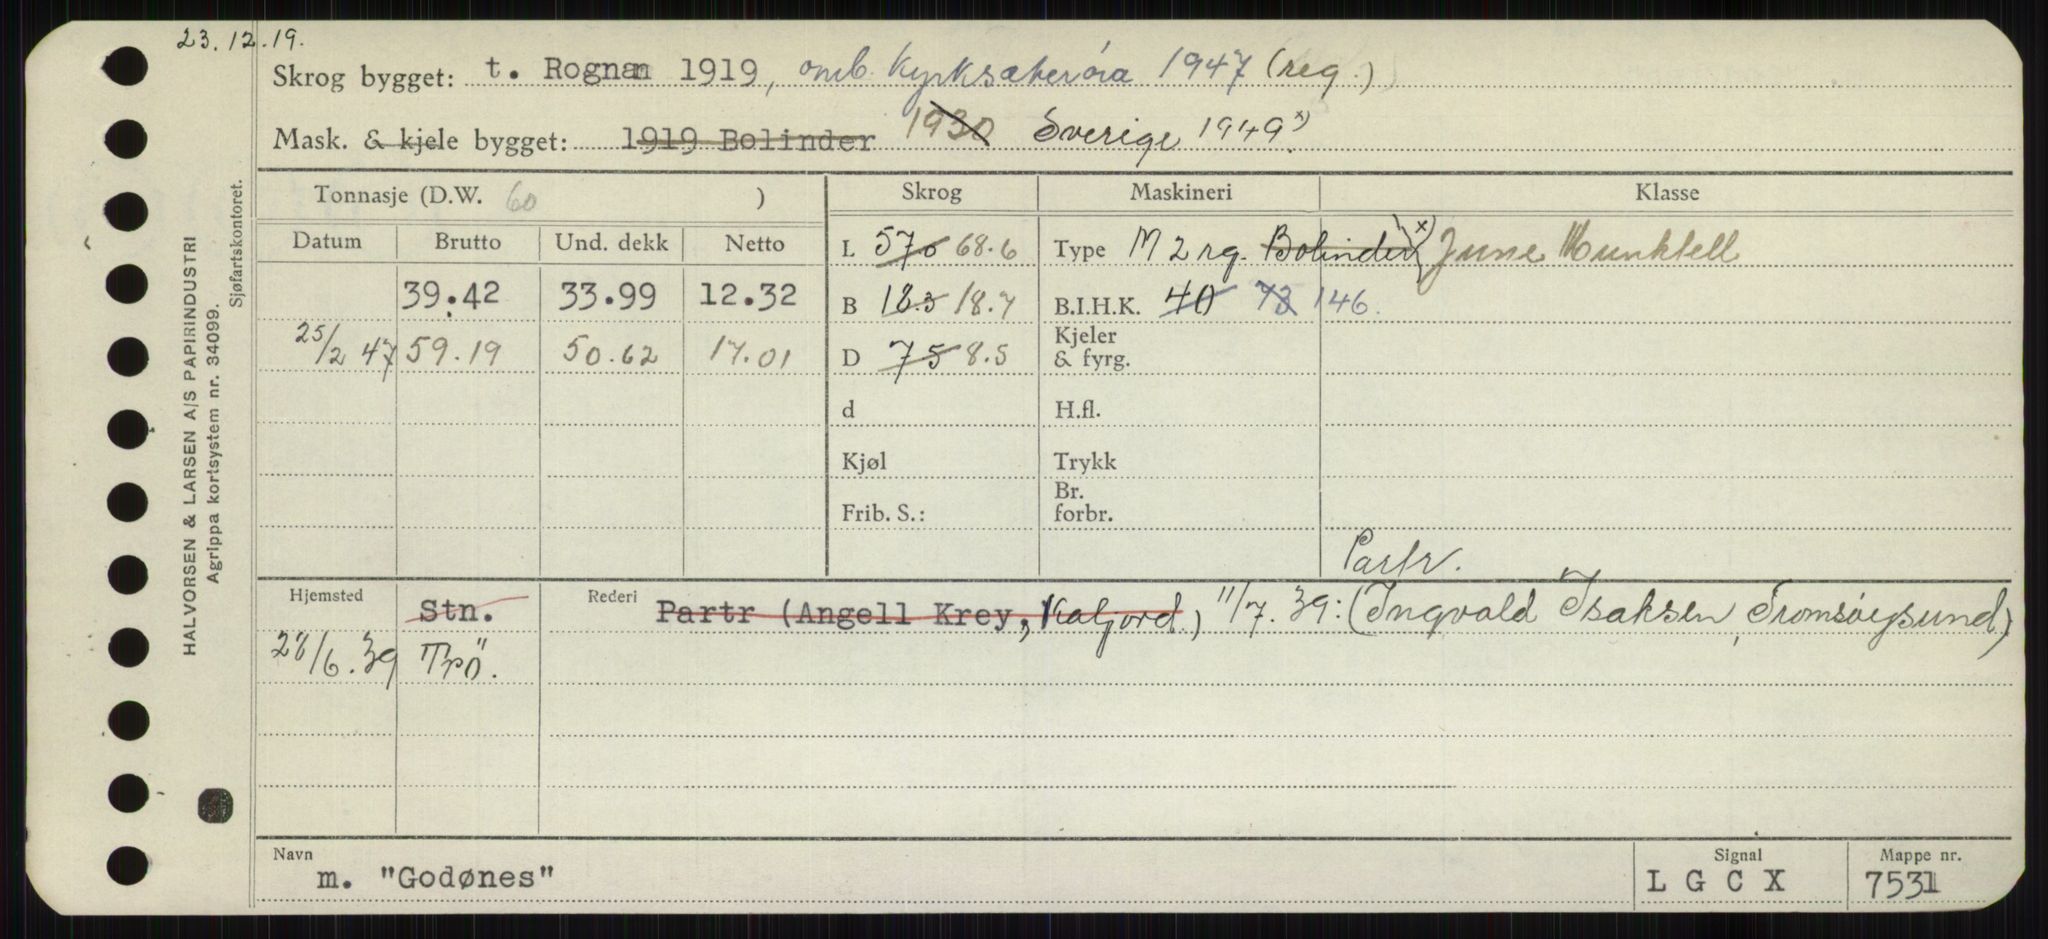 23.12.19.
Skrog bygget: t. Rognan 1919, omb. Kyrksæterøra 1947 (reg.)
Mask. & kjele bygget: 1919 Bolinder 1930 Sverige 1949 x)
Tonnasje (D.W. 60 ) Skrog Maskineri Klasse
Datum Brutto Und. dekk Netto L 57.0 68.6 Type M 2 rg. Bolinder x) June Munktell
39.42 33.99 12.32 B 18.3 18.7 B.I.H.K. 40 73 146.
25/2 47 59.19 50.62 17.01 D 7.5 8.5 Kjeler & fyrg.
d H.fl.
Kjøl Trykk
Frib. S.: Br. forbr.
Partr.
Hjemsted Stn. Rederi Partr (Angell Krey, Kafjord.) 11/7.39: (Ingvald Isaksen, Tromsøysund)
28/6.39 Trö.
Navn Signal Mappe nr.
m. "Godønes" L G C X 7531
HALVORSEN & LARSEN A/S PAPIRINDUSTRI
Agrippa kortsystem nr. 34099.
Sjøfartskontoret.